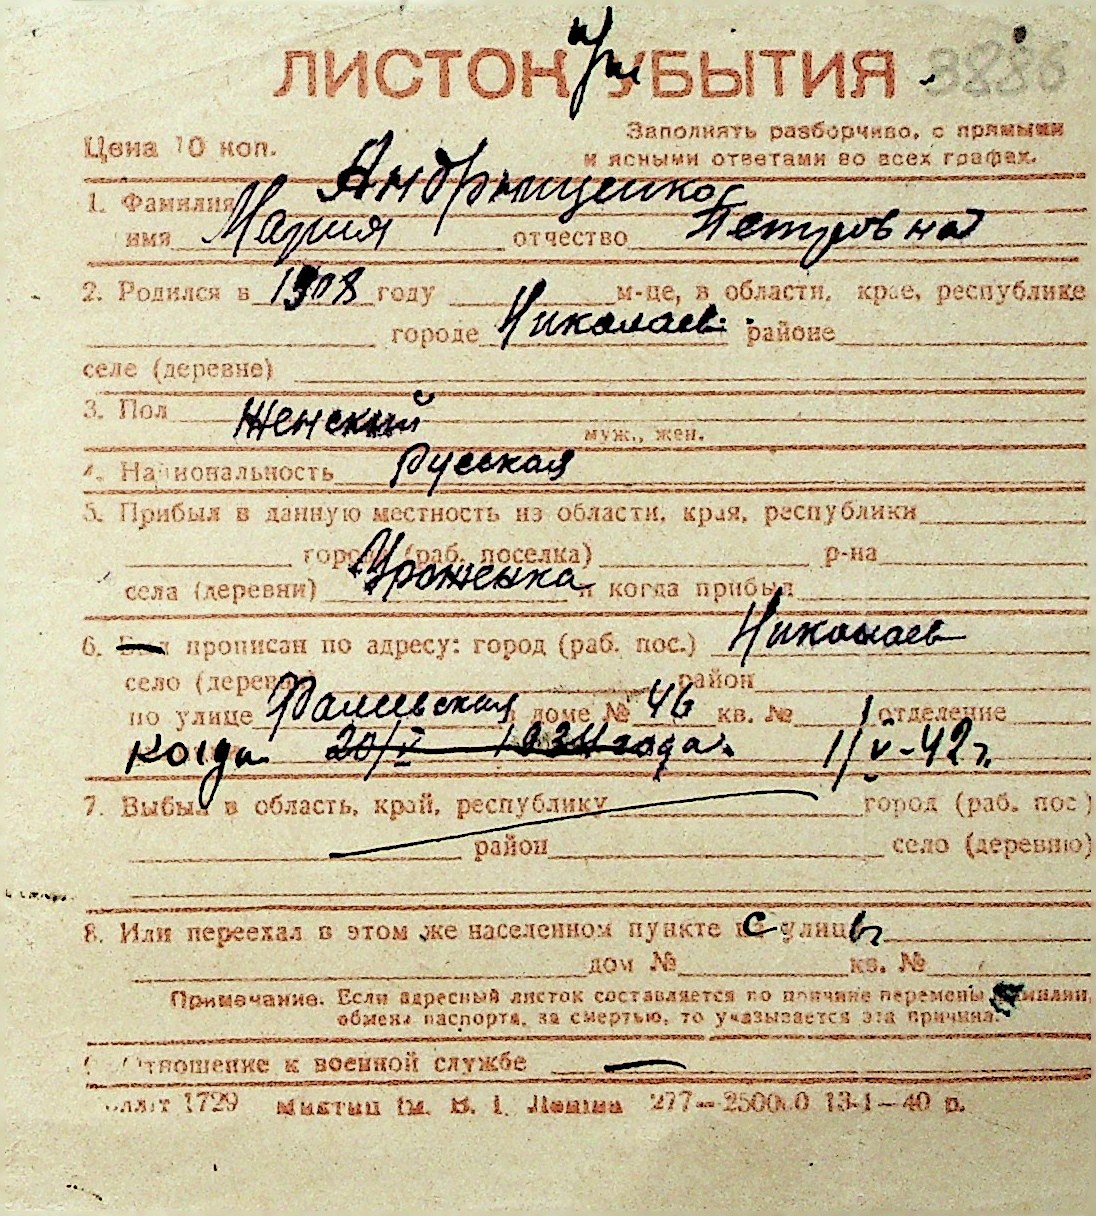 ЛИСТОК при УБЫТИЯ
Цена 10 коп.
Заполнять разборчиво, с прямыми
и ясными ответами во всех графах.
1. Фамилия Андрющенко
имя Мария отчество Петровна
2. Родился в 1908 году м-це, в области, крае, республике
городе Николаев районе
селе (деревне)
3. Пол Женский
муж., жен.
4. Национальность Русская
5. Прибыл в данную местность из области, края, республики
города (раб. поселка) р-на
села (деревни) Уроженка и когда прибыл
6. Был прописан по адресу: город (раб. пос.) Николаев
село (деревня) район
по улице Фалеевская в доме № 46 кв. № 1 отделение
когда 20/V 1934 года. 1/V-42 г.
7. Выбыл в область, край, республику город (раб. пос)
район село (деревню)
8. Или переехал в этом же населенном пункте с улицы
дом № кв. №
Примечание. Если адресный листок составляется по причине перемены фамилии,
обмена паспорта, за смертью, то указывается эта причина.
9. Отношение к военной службе —
1729 им. В. І. Леніна 277—250000 13-1—40 р.